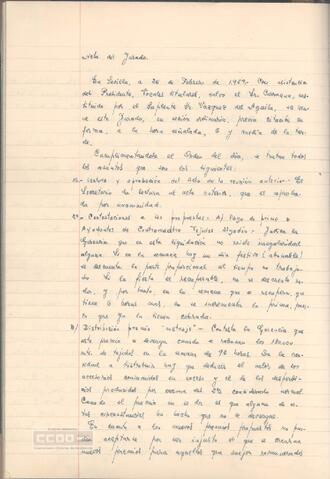 Acta del Jurado.
En Sevilla, a 26 de Febrero de 1969. Con asistencia
del Presidente, Vocales titulares, salvo el Sr. Carmona, sus-
tituido por el Suplente Sr. Vazquez del Aguila, se reu-
ne este Jurado, en sesión ordinaria, previa citación en
forma, a la hora señalada, 6 y media de la tar-
de.
Cumplimentando el Orden del día, se tratan todos
los asuntos que son los siguientes:
1º.- Lectura y aprobación del acta de la reunión anterior.- El
Secretario da lectura al acta anterior, que es aproba-
da por unanimidad.
2º.- Contestaciones a las propuestas: A) Pago de prima a
Ayudantes de Contramaestre Tejidos Algodón: Justifica la
Gerencia que en esta liquidación no existe irregularidad
alguna. Si en la semana hay un día festivo (abonable)
se descuenta la parte proporcional al tiempo no trabaja-
do. Si la fiesta es recuperable, no se descuenta na-
da, y por tanto en la semana que se recupera, que
tiene 6 horas mas, no se incrementa la prima, pues-
to que ya la tienen cobrada.
B) Distribución premio "metraje".- Contesta la Gerencia que
este premio se devenga cuando se rebasan los 180.000
mts. de tejidos en la semana de 48 horas. De la can-
tidad a distribuir hay que deducir el valor de los
accesorios consumidos en exceso y el de los desperdi-
cios producidos por encima del 2% considerado normal.
Cuando el premio es cero es que alguna de es-
tas circunstancias ha hecho que no se devengue.
En cuanto a los nuevos premios propuestos no pue-
den aceptarse por ser injusto el que se creen
nuevos premios para aquellos que mejor remunerados
CCOO